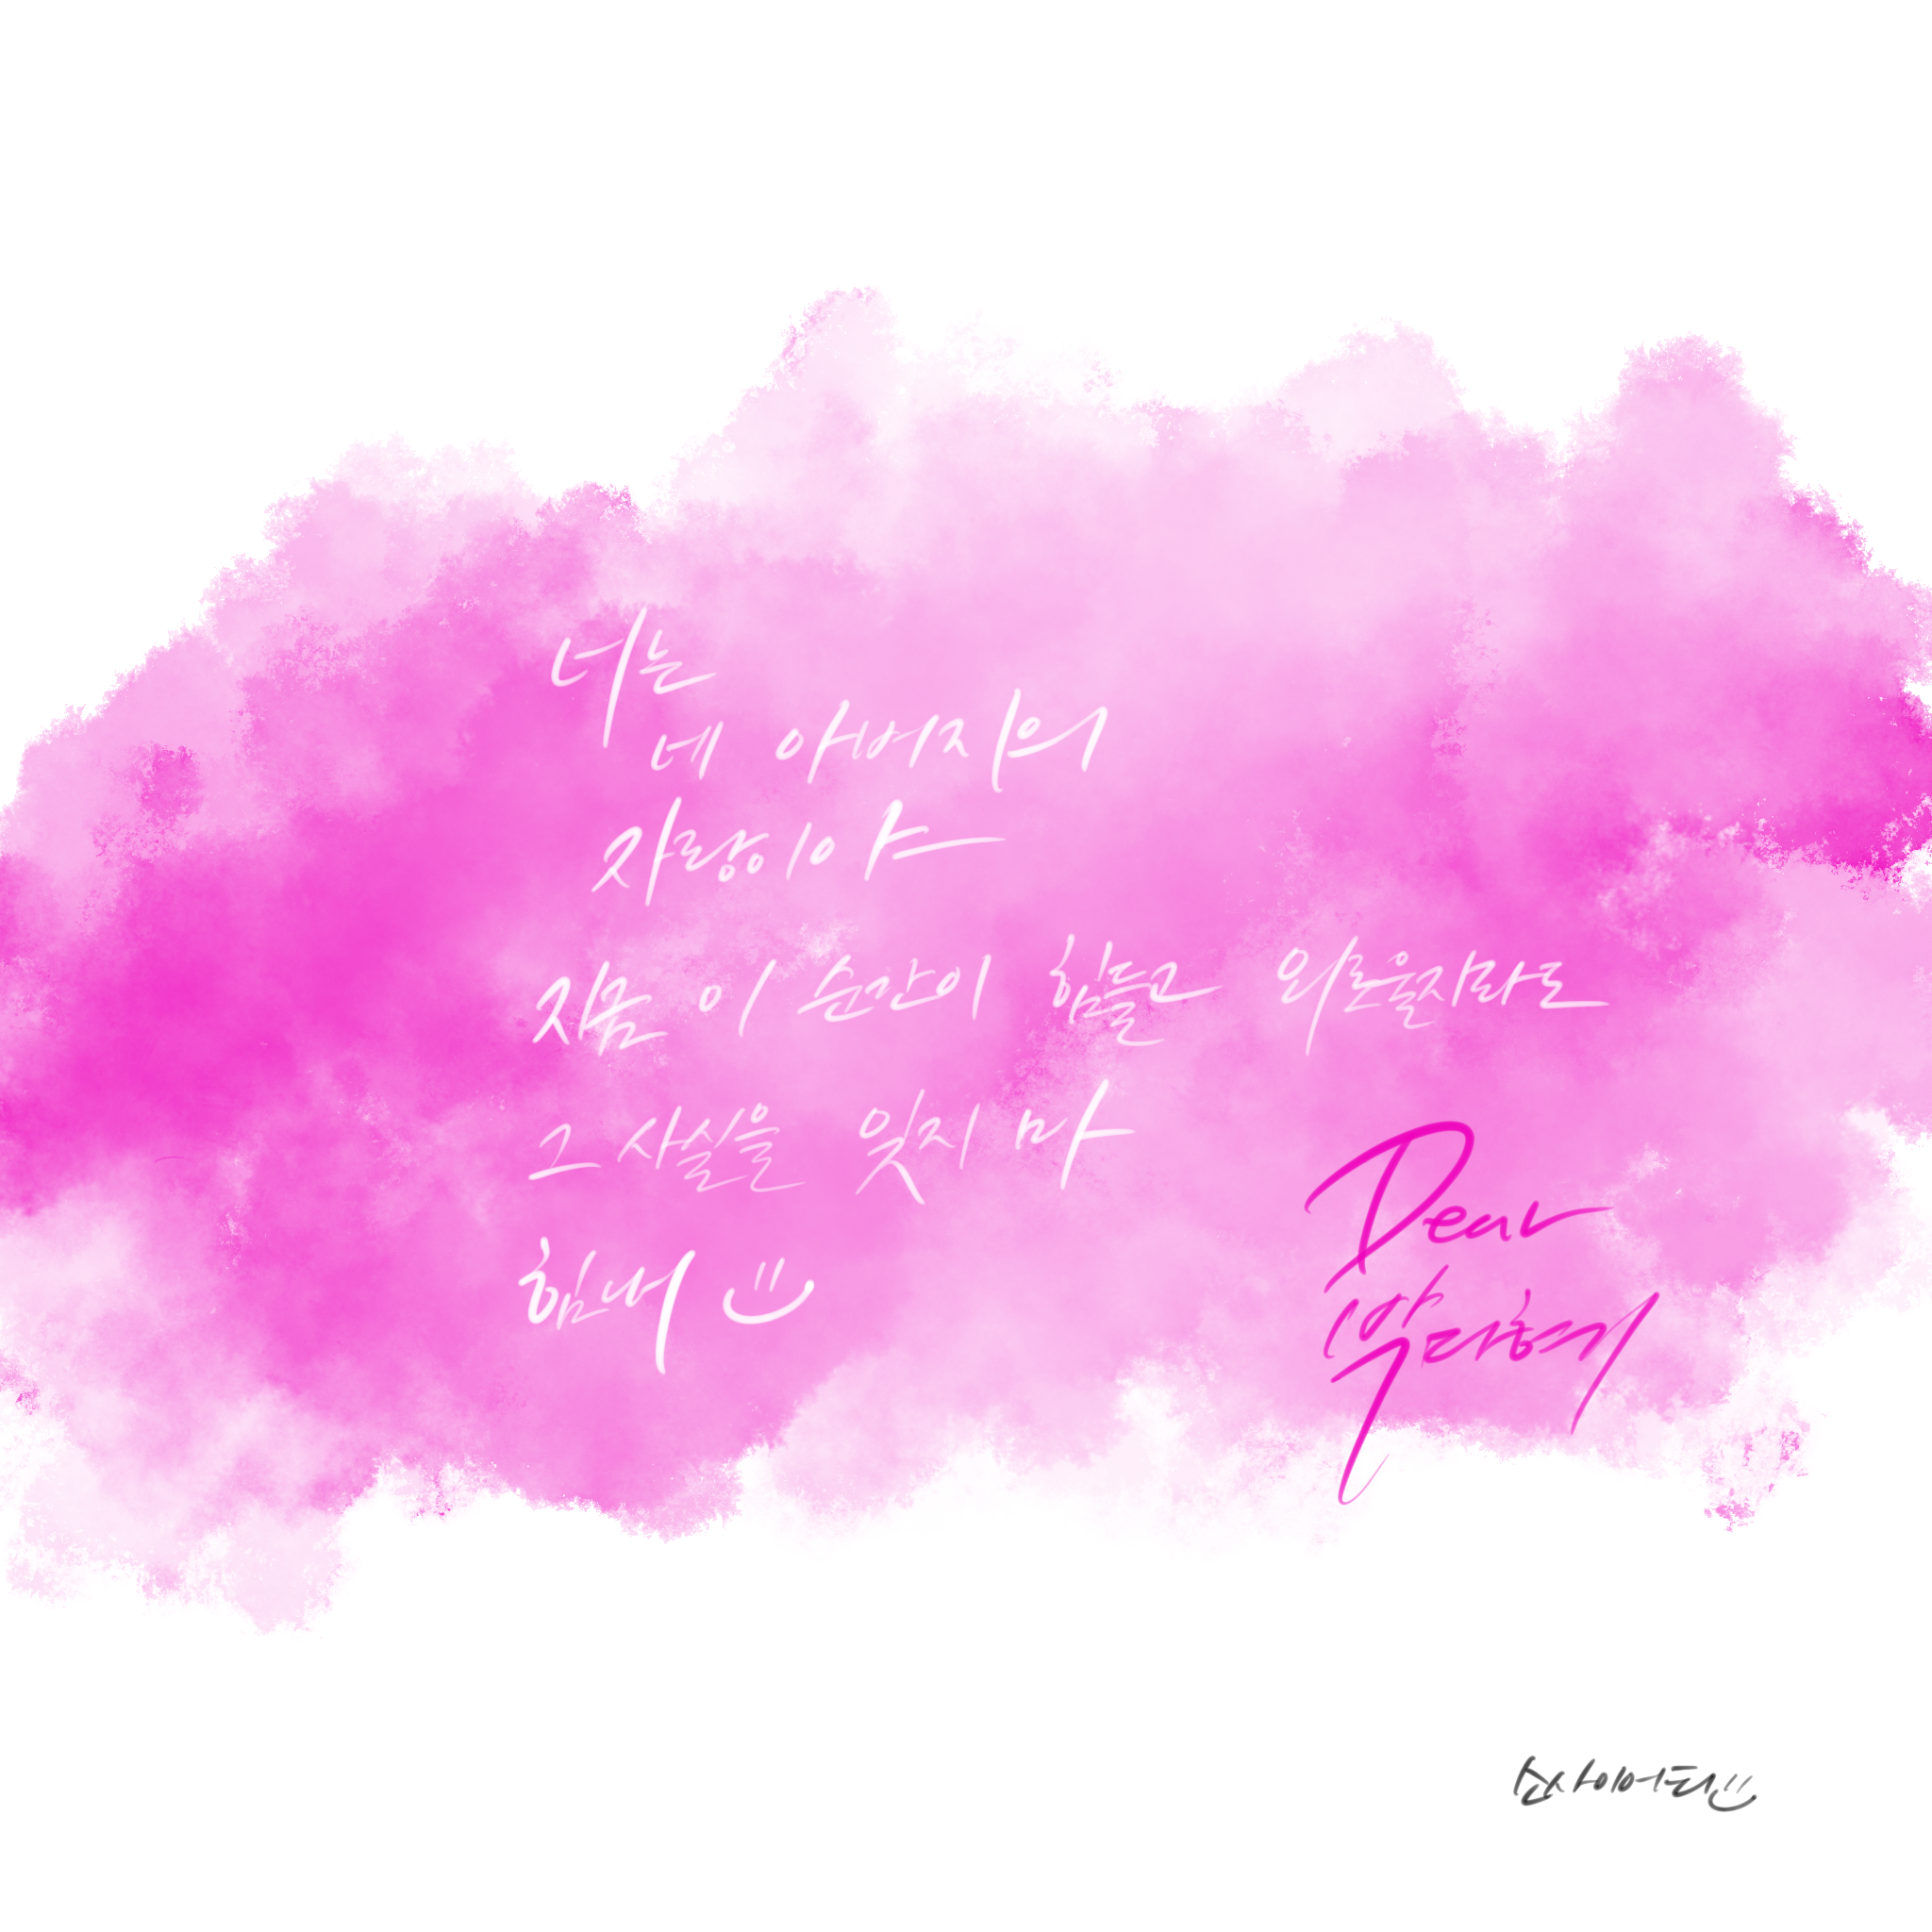 너는
네 아버지의
자랑이야
지금 이 순간이 힘들고 외로울지라도
그 사실을 잊지 마
힘내
Dear
박다현